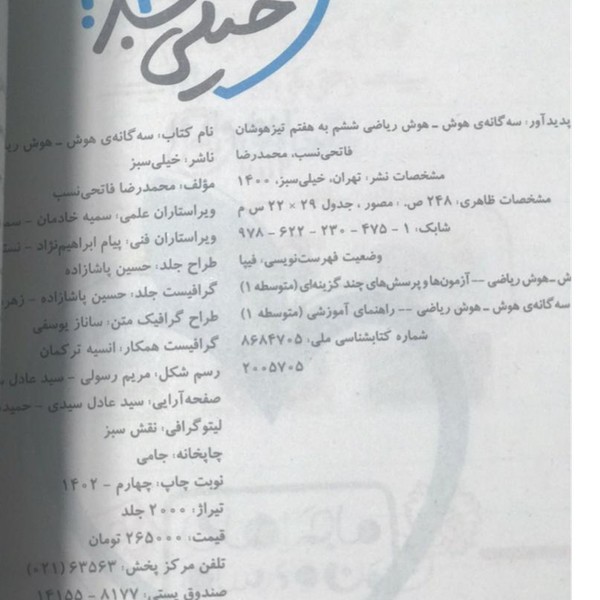 خیلی سبز
پدیدآور: سه‌گانه‌ی هوش ـ هوش ریاضی ششم به هفتم تیزهوشان
فاتحی‌نسب، محمدرضا
مشخصات نشر: تهران، خیلی‌سبز، ۱۴۰۰
مشخصات ظاهری: ۲۴۸ ص.: مصور، جدول ۲۹ × ۲۲ س م
شابک: ۱ - ۴۷۵ - ۲۳۰ - ۶۲۲ - ۹۷۸
وضعیت فهرست‌نویسی: فیپا
ش-هوش ریاضی -- آزمون‌ها و پرسش‌های چند گزینه‌ای (متوسطه ۱)
سه گانه‌ی هوش - هوش ریاضی -- راهنمای آموزشی (متوسطه ۱)
شماره کتابشناسی ملی: ۸۶۸۴۷۰۵
۲۰۰۵۷۰۵
نام کتاب: سه‌گانه‌ی هوش ـ هوش ریا
ناشر: خیلی‌سبز
مؤلف: محمدرضا فاتحی‌نسب
ویراستاران علمی: سمیه خادمان -
ویراستاران فنی: پیام ابراهیم‌نژاد -
طراح جلد: حسین پاشازاده
گرافیست جلد: حسین پاشازاده - زهر
طراح گرافیک متن: ساناز یوسفی
گرافیست همکار: انسیه ترکمان
رسم شکل: مریم رسولی - سید عادل
صفحه‌آرایی: سید عادل سیدی - حمید
لیتوگرافی: نقش سبز
چاپخانه: جامی
نوبت چاپ: چهارم - ۱۴۰۲
تیراژ: ۲۰۰۰ جلد
قیمت: ۲۶۵۰۰۰ تومان
تلفن مرکز پخش: ۶۳۵۶۳ (۰۲۱)
صندوق پستی: ۸۱۷۷ - ۱۴۱۵۵